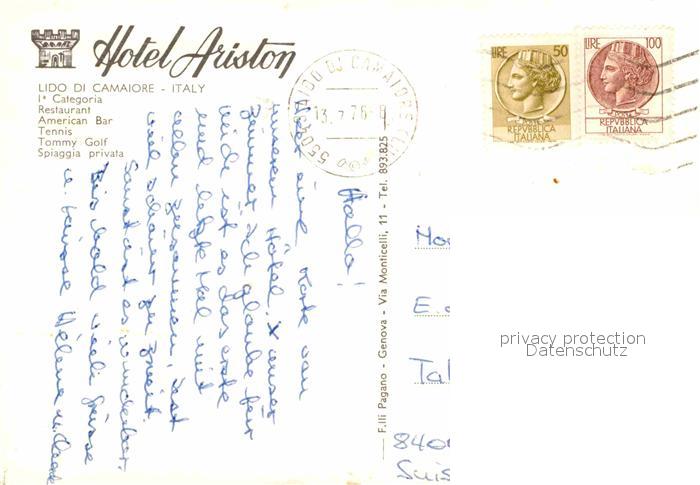 Hotel Ariston
LIDO DI CAMAIORE - ITALY
Iª Categoria
Restaurant
American Bar
Tennis
Tommy Golf
Spiaggia privata
55043 LIDO DI CAMAIORE
13.7.76-8
LIRE 50
REPVBBLICA
ITALIANA
LIRE 100
REPVBBLICA
ITALIANA
F.lli Pagano - Genova - Via Monticelli, 11 - Tel. 893.825
Hallo!
eine Karte von
unserem Hotel. X unser
Zimmer. Ich glaube für
beide ist es das erste
und letzte Mal mit
allen zusammen, ist
viel schöner zu zweit.
Sonst ist es wunderbar.
Bis bald viele Grüsse
u. Küsse Hélène u.
E.
840
Suis
privacy protection
Datenschutz